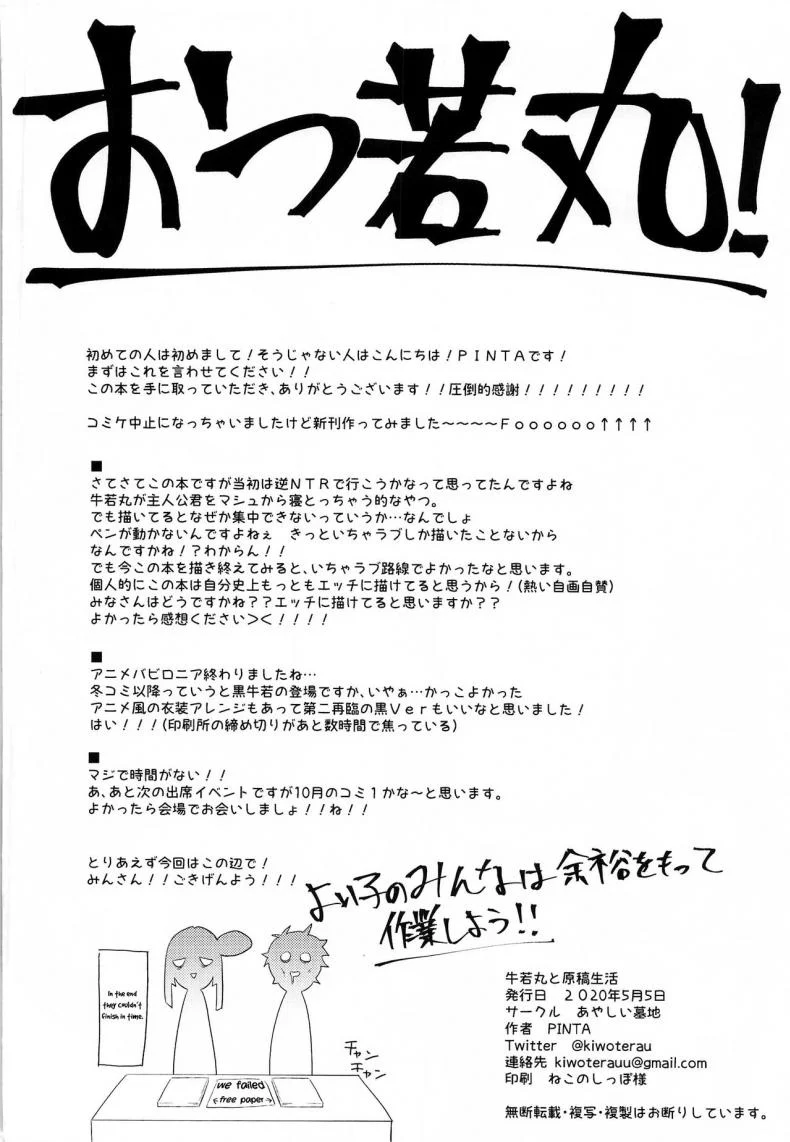 おつ若丸!
初めての人は初めまして！そうじゃない人はこんにちは！ＰＩＮＴＡです！
まずはこれを言わせてください！！
この本を手に取っていただき、ありがとうございます！！圧倒的感謝！！！！！！！！！
コミケ中止になっちゃいましたけど新刊作ってみました～～～～Ｆｏｏｏｏｏｏ↑↑↑↑
■
さてさてこの本ですが当初は逆ＮＴＲで行こうかなって思ってたんですよね
牛若丸が主人公君をマシュから寝とっちゃう的なやつ。
でも描いてるとなぜか集中できないっていうか…なんでしょ
ペンが動かないんですよねぇ　きっといちゃラブしか描いたことないから
なんですかね！？わからん！！
でも今この本を描き終えてみると、いちゃラブ路線でよかったなと思います。
個人的にこの本は自分史上もっともエッチに描けてると思うから！(熱い自画自賛)
みなさんはどうですかね？？エッチに描けてると思いますか？？
よかったら感想ください＞＜！！！！
■
アニメバビロニア終わりましたね…
冬コミ以降っていうと黒牛若の登場ですか、いやぁ…かっこよかった
アニメ風の衣装アレンジもあって第二再臨の黒Ｖｅｒもいいなと思いました！
はい！！！(印刷所の締め切りがあと数時間で焦っている)
■
マジで時間がない！！
あ、あと次の出席イベントですが10月のコミ１かな～と思います。
よかったら会場でお会いしましょ！！ね！！
とりあえず今回はこの辺で！
みんさん！！ごきげんよう！！！
よい子のみんなは余裕をもって
作業しよう!!
In the end
they couldn't
finish in time.
チャン
チャン
we failed
<free paper>
牛若丸と原稿生活
発行日　２０20年5月5日
サークル　あやしい墓地
作者　PINTA
Twitter　@kiwoterau
連絡先 kiwoterauu@gmail.com
印刷　ねこのしっぽ様
無断転載・複写・複製はお断りしています。